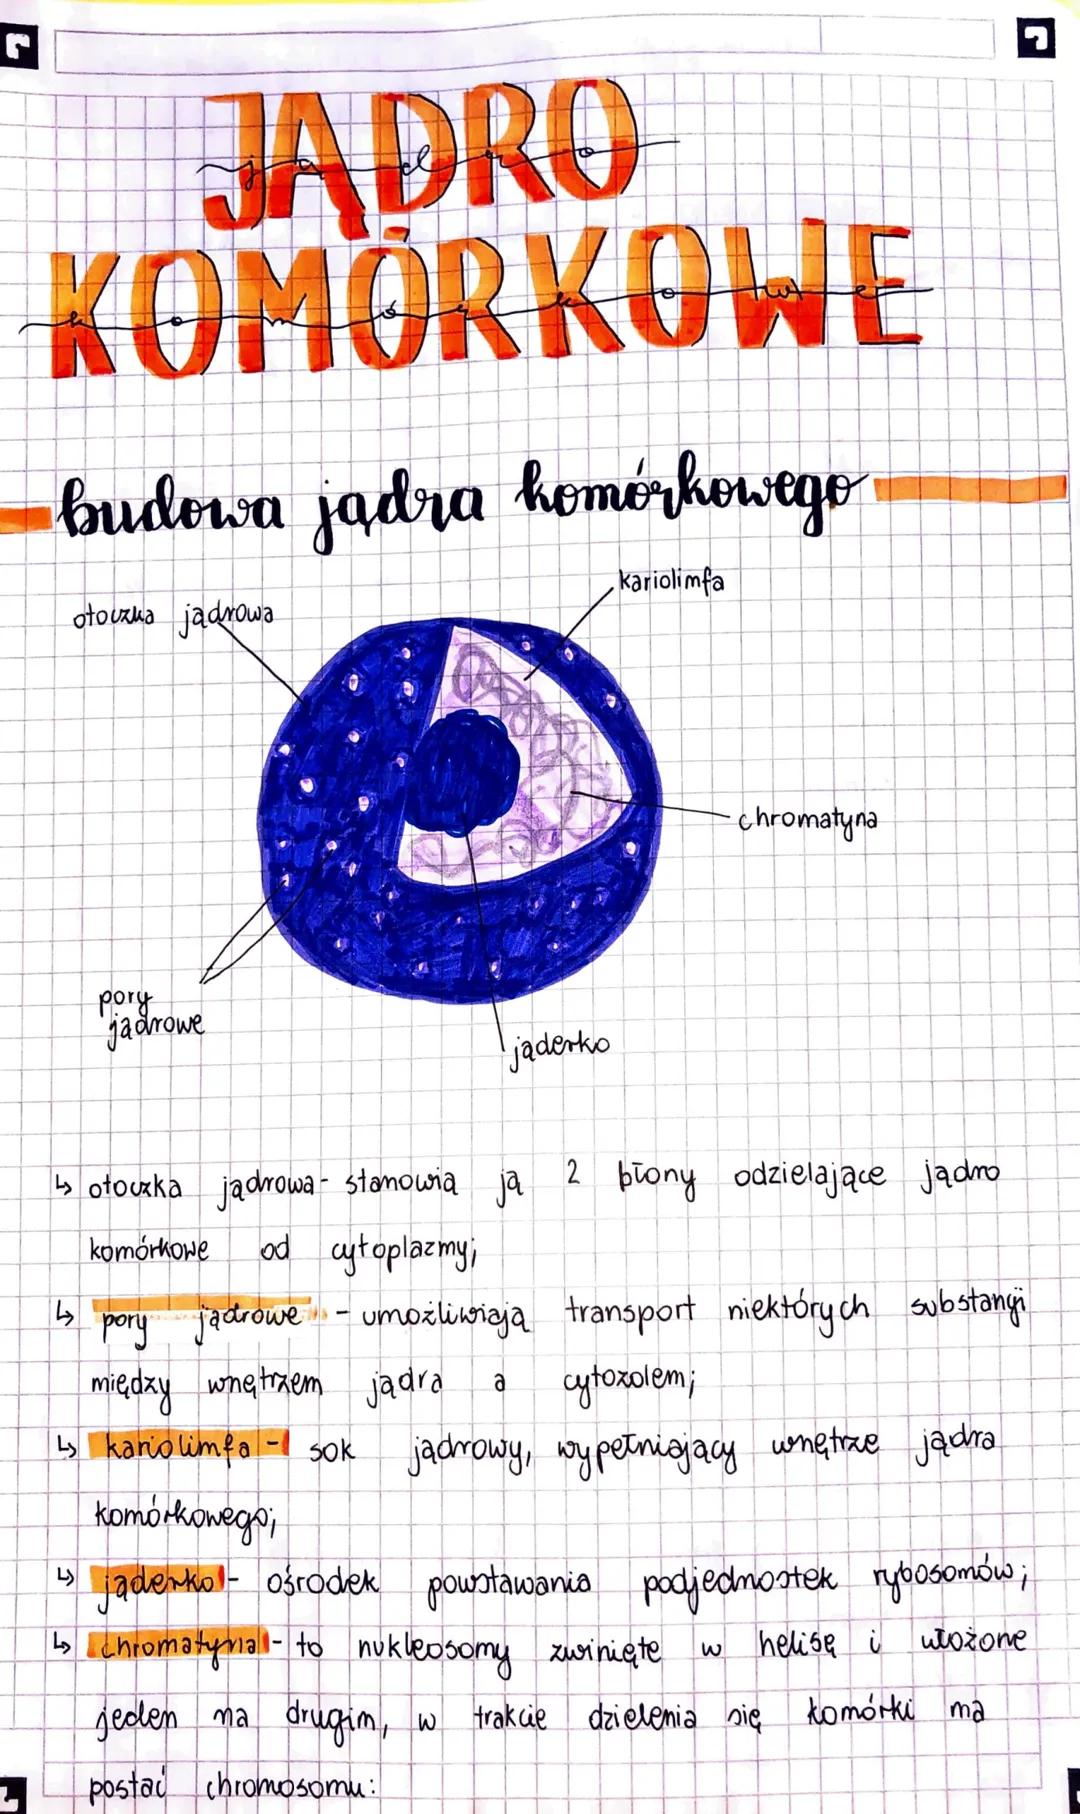 JĄDRO
jądro
KOMÓRKOWE
komórkowe
budowa jądra komórkowego
kariolimfa
otoczka jądrowa
chromatyna
pory
jądrowe
jąderko
↳ otoczka jądrowa - stanowią ją 2 błony odzielające jądro
komórkowe od cytoplazmy;
↳ pory jądrowe - umożliwiają transport niektórych substancji
między wnętrzem jądra a cytozolem;
↳ kariolimfa - sok jądrowy, wypełniający wnętrze jądra
komórkowego;
↳ jąderko - ośrodek powstawania podjednostek rybosomów;
↳ chromatyna - to nukleosomy zwinięte w helisę i ułożone
jeden na drugim, w trakcie dzielenia się komórki ma
postać chromosomu: